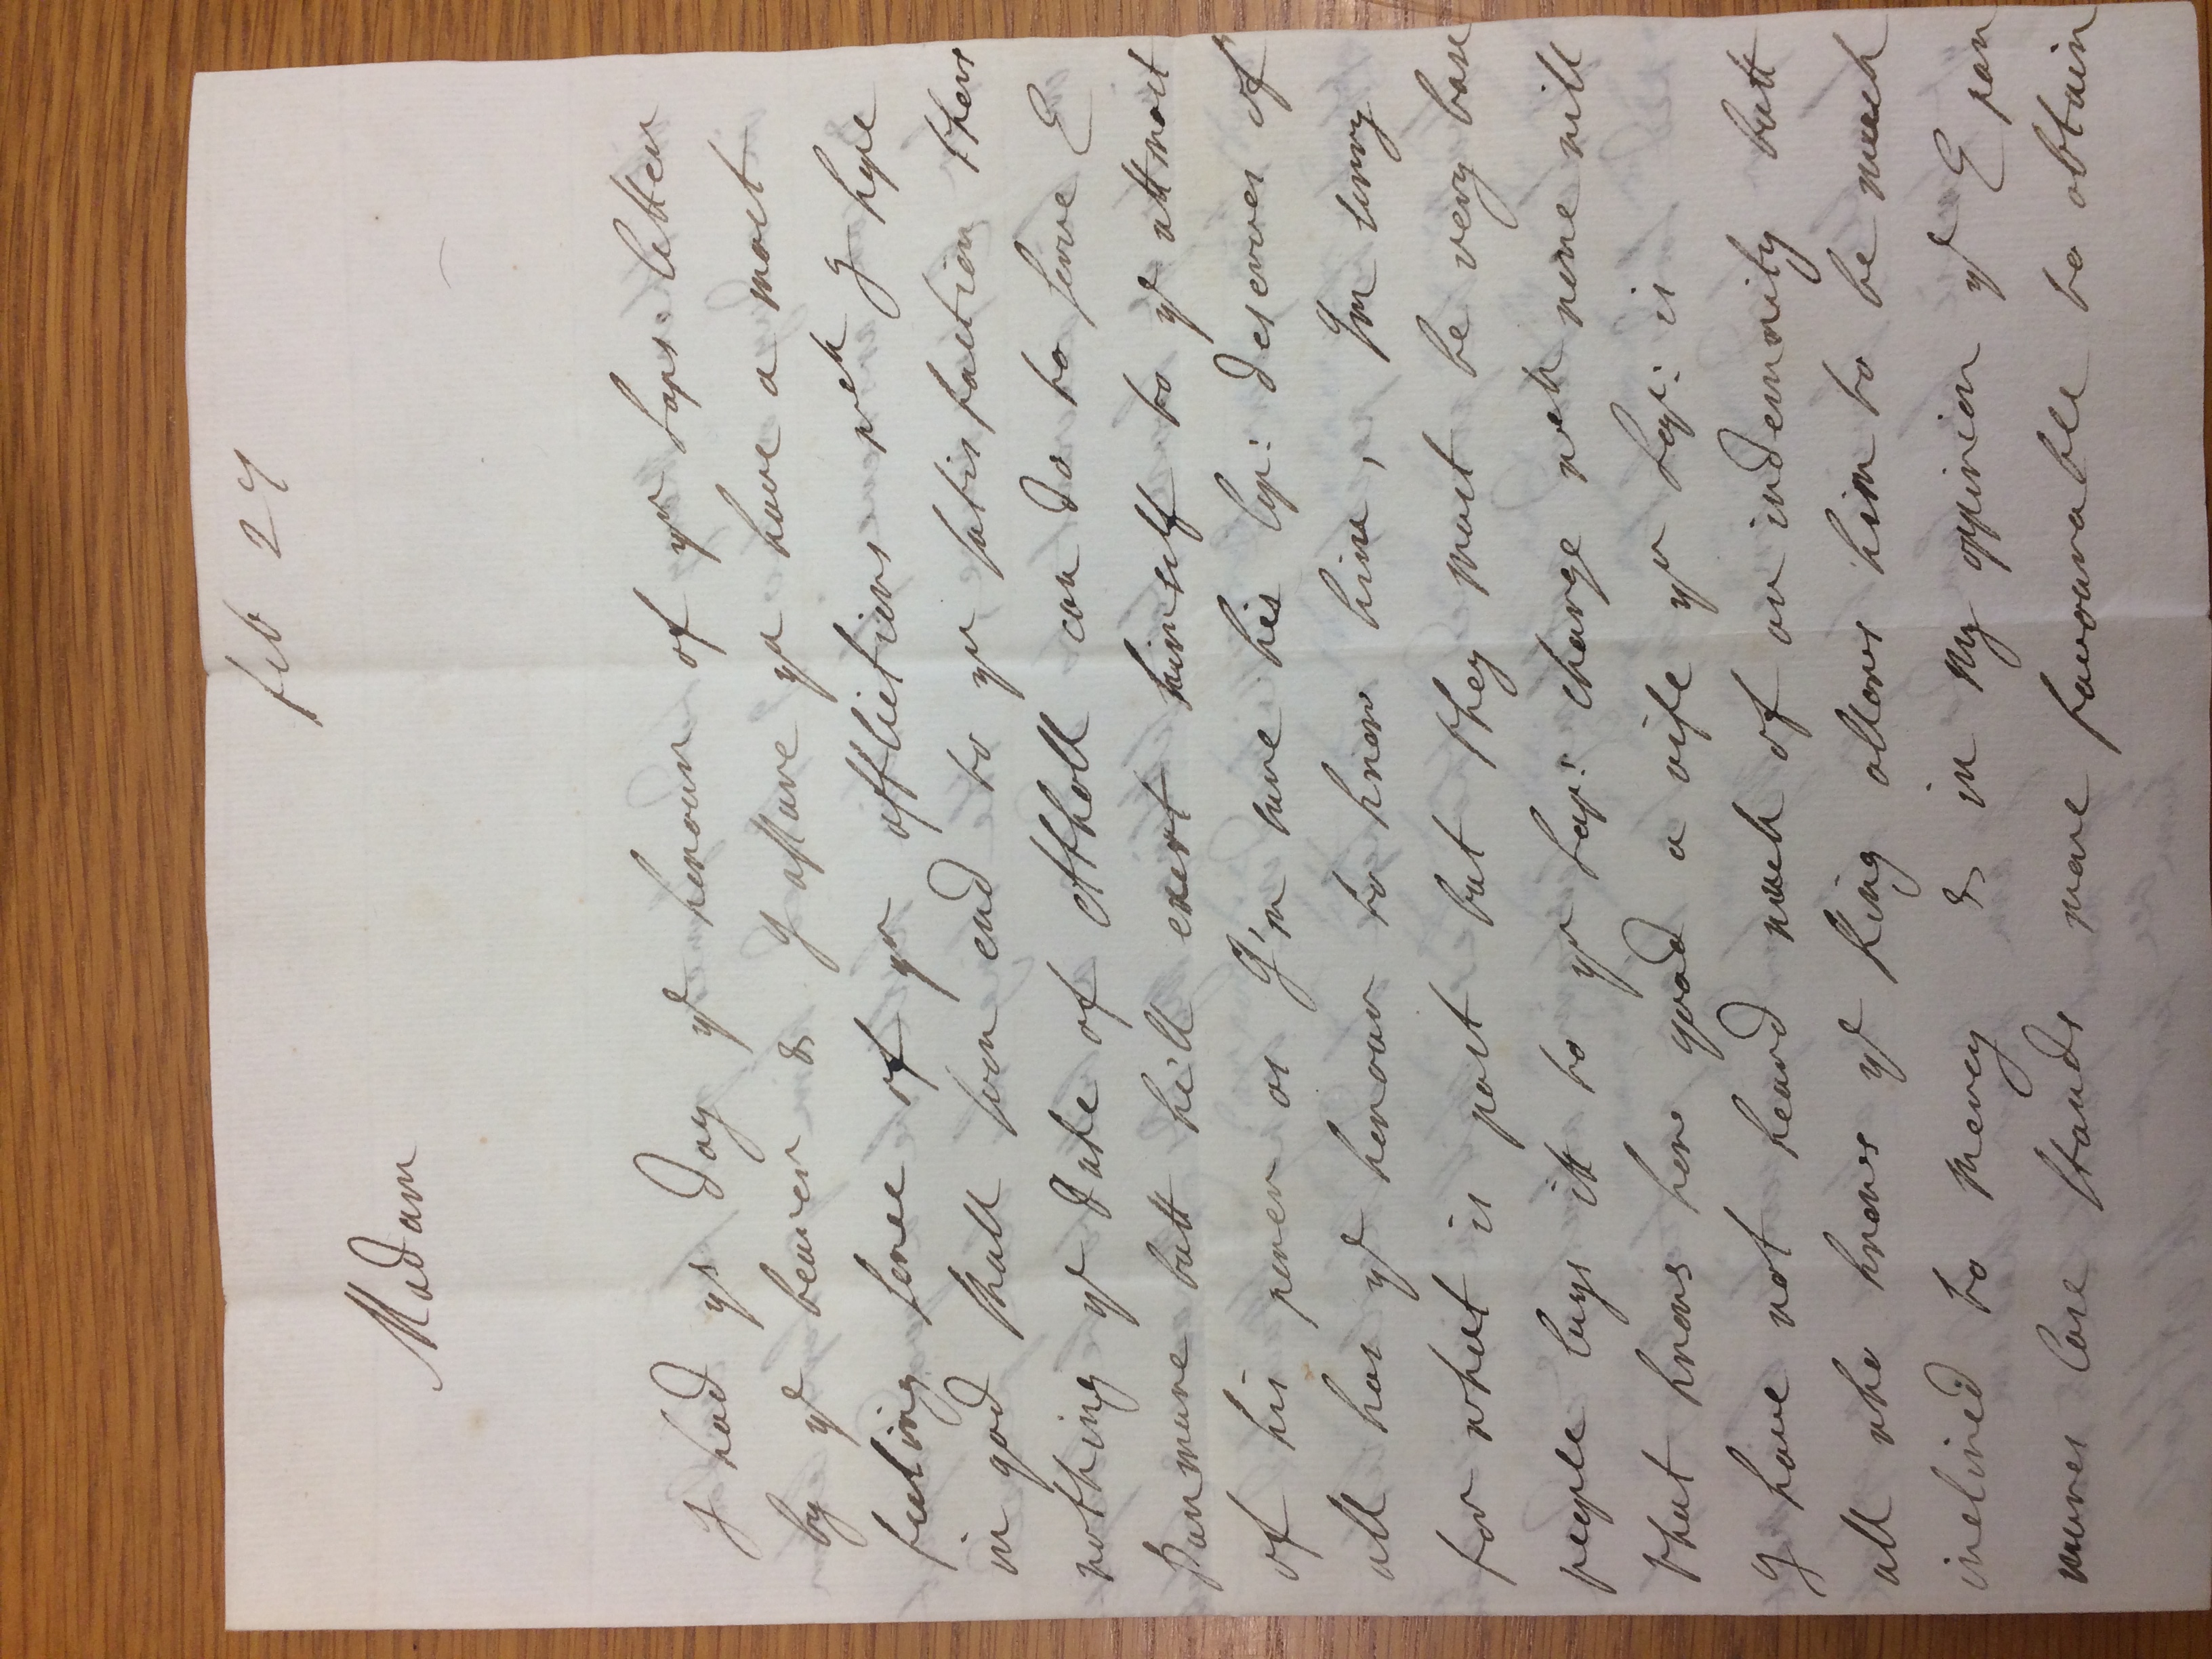 feb 24
Madam
I had ys day ye honour of yr Laps: letter
by ye bearer & I assure yu have a most
feeling sence of yr afflictions wch I hope
in god shall soon end to yr satisfaction thers
nothing ye Duke of Atholl can do to serve E
Panmure butt he'll exert himself to ye uttmost
of his power as I'm sure his Lop: deserves of
all has ye honour to know him, I'm sorry
for what is past but they must be very base
people lays itt to yr Lap: charge wch none will
that knows how good a wife yr Lap: is
I have not heard much of an indemnity butt
all who knows ye King allows him to be much
inclined to mercy & in my oppinion ye E pan
mures Case stands more favourable to obtain